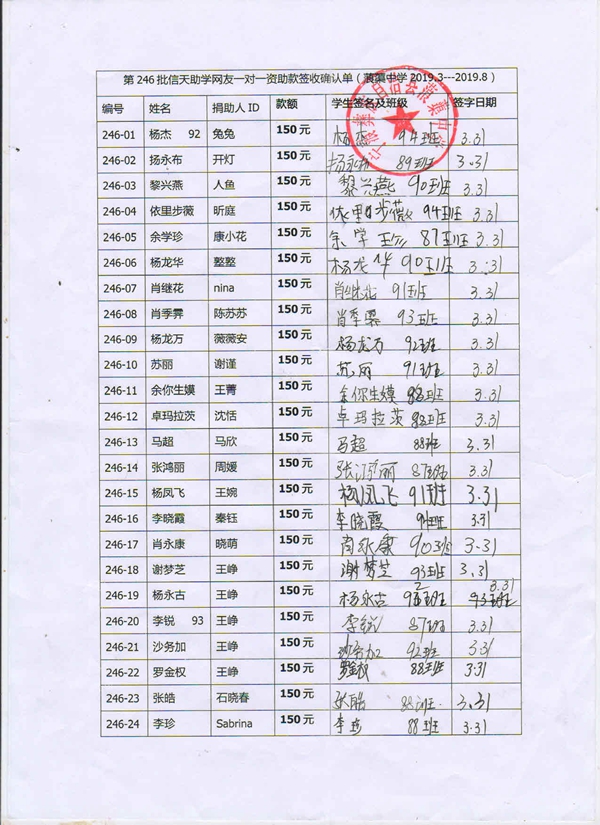 第 246 批信天助学网友一对一资助款签收确认单（蒗蕖中学 2019.3---2019.8）
编号 姓名 捐助人 ID 款额 学生签名及班级 签字日期
246-01 杨杰 92 兔兔 150 元 杨杰 94班 3.31
246-02 扬永布 开灯 150 元 扬永布 89班 3.31
246-03 黎兴燕 人鱼 150 元 黎兴燕 90班 3.31
246-04 依里步薇 昕庭 150 元 依里步薇 94班 3.31
246-05 余学珍 康小花 150 元 余学珍 87班 3.31
246-06 杨龙华 整整 150 元 杨龙华 90班 3.31
246-07 肖继花 nina 150 元 肖继花 91班 3.31
246-08 肖季霁 陈苏苏 150 元 肖季 93班 3.31
246-09 杨龙万 薇薇安 150 元 杨龙万 92班 3.31
246-10 苏丽 谢谨 150 元 苏丽 91班 3.31
246-11 余你生嫫 王菁 150 元 余你生嫫 88班 3.31
246-12 卓玛拉茨 沈恬 150 元 卓玛拉茨 88班 3.31
246-13 马超 马欣 150 元 马超 88班 3.31
246-14 张鸿丽 周媛 150 元 张鸿丽 87班 3.31
246-15 杨凤飞 王婉 150 元 杨凤飞 91班 3.31
246-16 李晓霞 秦钰 150 元 李晓霞 91班 3.31
246-17 肖永康 晓萌 150 元 肖永康 90班 3.31
246-18 谢梦芝 王峥 150 元 谢梦芝 93班 3.31
246-19 杨永古 王峥 150 元 杨永古 92班 93班 3.31
246-20 李锐 93 王峥 150 元 李锐 87班 3.31
246-21 沙务加 王峥 150 元 沙务加 92班 3.31
246-22 罗金权 王峥 150 元 罗金权 88班 3.31
246-23 张皓 石晓春 150 元 张皓 88班 3.31
246-24 李珍 Sabrina 150 元 李珍 88班 3.31